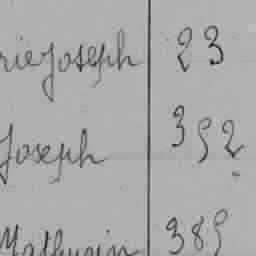 rie Joseph 23
Joseph 392
Mathurin 389